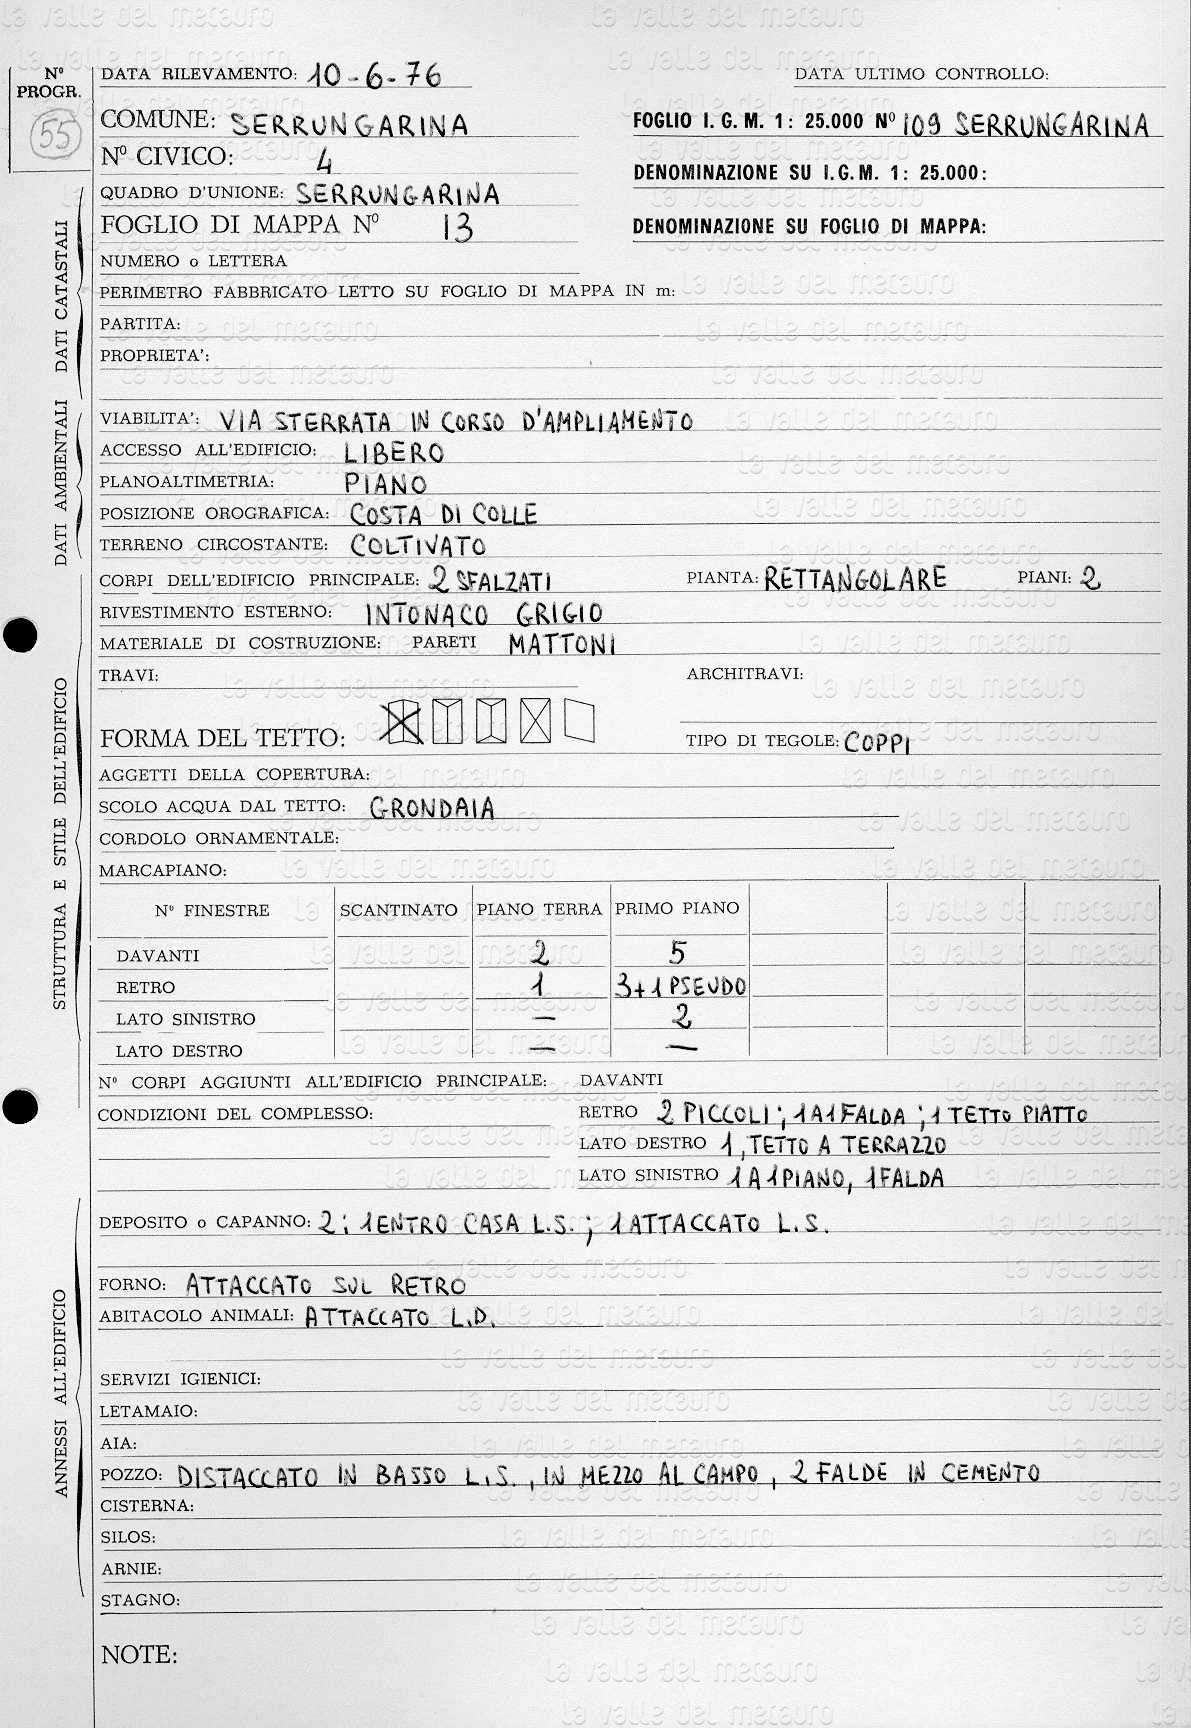 Nº PROGR. 55
DATA RILEVAMENTO: 10-6-76
DATA ULTIMO CONTROLLO:
COMUNE: SERRUNGARINA
FOGLIO I. G. M. 1: 25.000 Nº 109 SERRUNGARINA
Nº CIVICO: 4
DENOMINAZIONE SU I.G.M. 1: 25.000:
QUADRO D'UNIONE: SERRUNGARINA
FOGLIO DI MAPPA Nº 13
DENOMINAZIONE SU FOGLIO DI MAPPA:
NUMERO o LETTERA
PERIMETRO FABBRICATO LETTO SU FOGLIO DI MAPPA IN m:
PARTITA:
PROPRIETA':
DATI CATASTALI
VIABILITA': VIA STERRATA IN CORSO D'AMPLIAMENTO
ACCESSO ALL'EDIFICIO: LIBERO
PLANOALTIMETRIA: PIANO
POSIZIONE OROGRAFICA: COSTA DI COLLE
TERRENO CIRCOSTANTE: COLTIVATO
DATI AMBIENTALI
CORPI DELL'EDIFICIO PRINCIPALE: 2 SFALZATI PIANTA: RETTANGOLARE PIANI: 2
RIVESTIMENTO ESTERNO: INTONACO GRIGIO
MATERIALE DI COSTRUZIONE: PARETI MATTONI
TRAVI: ARCHITRAVI:
FORMA DEL TETTO: TIPO DI TEGOLE: COPPI
AGGETTI DELLA COPERTURA:
SCOLO ACQUA DAL TETTO: GRONDAIA
CORDOLO ORNAMENTALE:
MARCAPIANO:
Nº FINESTRE SCANTINATO PIANO TERRA PRIMO PIANO
DAVANTI 2 5
RETRO 1 3+1 PSEUDO
LATO SINISTRO — 2
LATO DESTRO — —
STRUTTURA E STILE DELL'EDIFICIO
Nº CORPI AGGIUNTI ALL'EDIFICIO PRINCIPALE: DAVANTI
CONDIZIONI DEL COMPLESSO: RETRO 2 PICCOLI; 1 A 1 FALDA; 1 TETTO PIATTO
LATO DESTRO 1, TETTO A TERRAZZO
LATO SINISTRO 1 A 1 PIANO, 1 FALDA
DEPOSITO o CAPANNO: 2: 1 ENTRO CASA L.S.; 1 ATTACCATO L.S.
FORNO: ATTACCATO SUL RETRO
ABITACOLO ANIMALI: ATTACCATO L.D.
SERVIZI IGIENICI:
LETAMAIO:
AIA:
POZZO: DISTACCATO IN BASSO L.S., IN MEZZO AL CAMPO, 2 FALDE IN CEMENTO
CISTERNA:
SILOS:
ARNIE:
STAGNO:
ANNESSI ALL'EDIFICIO
NOTE:
la valle del metauro